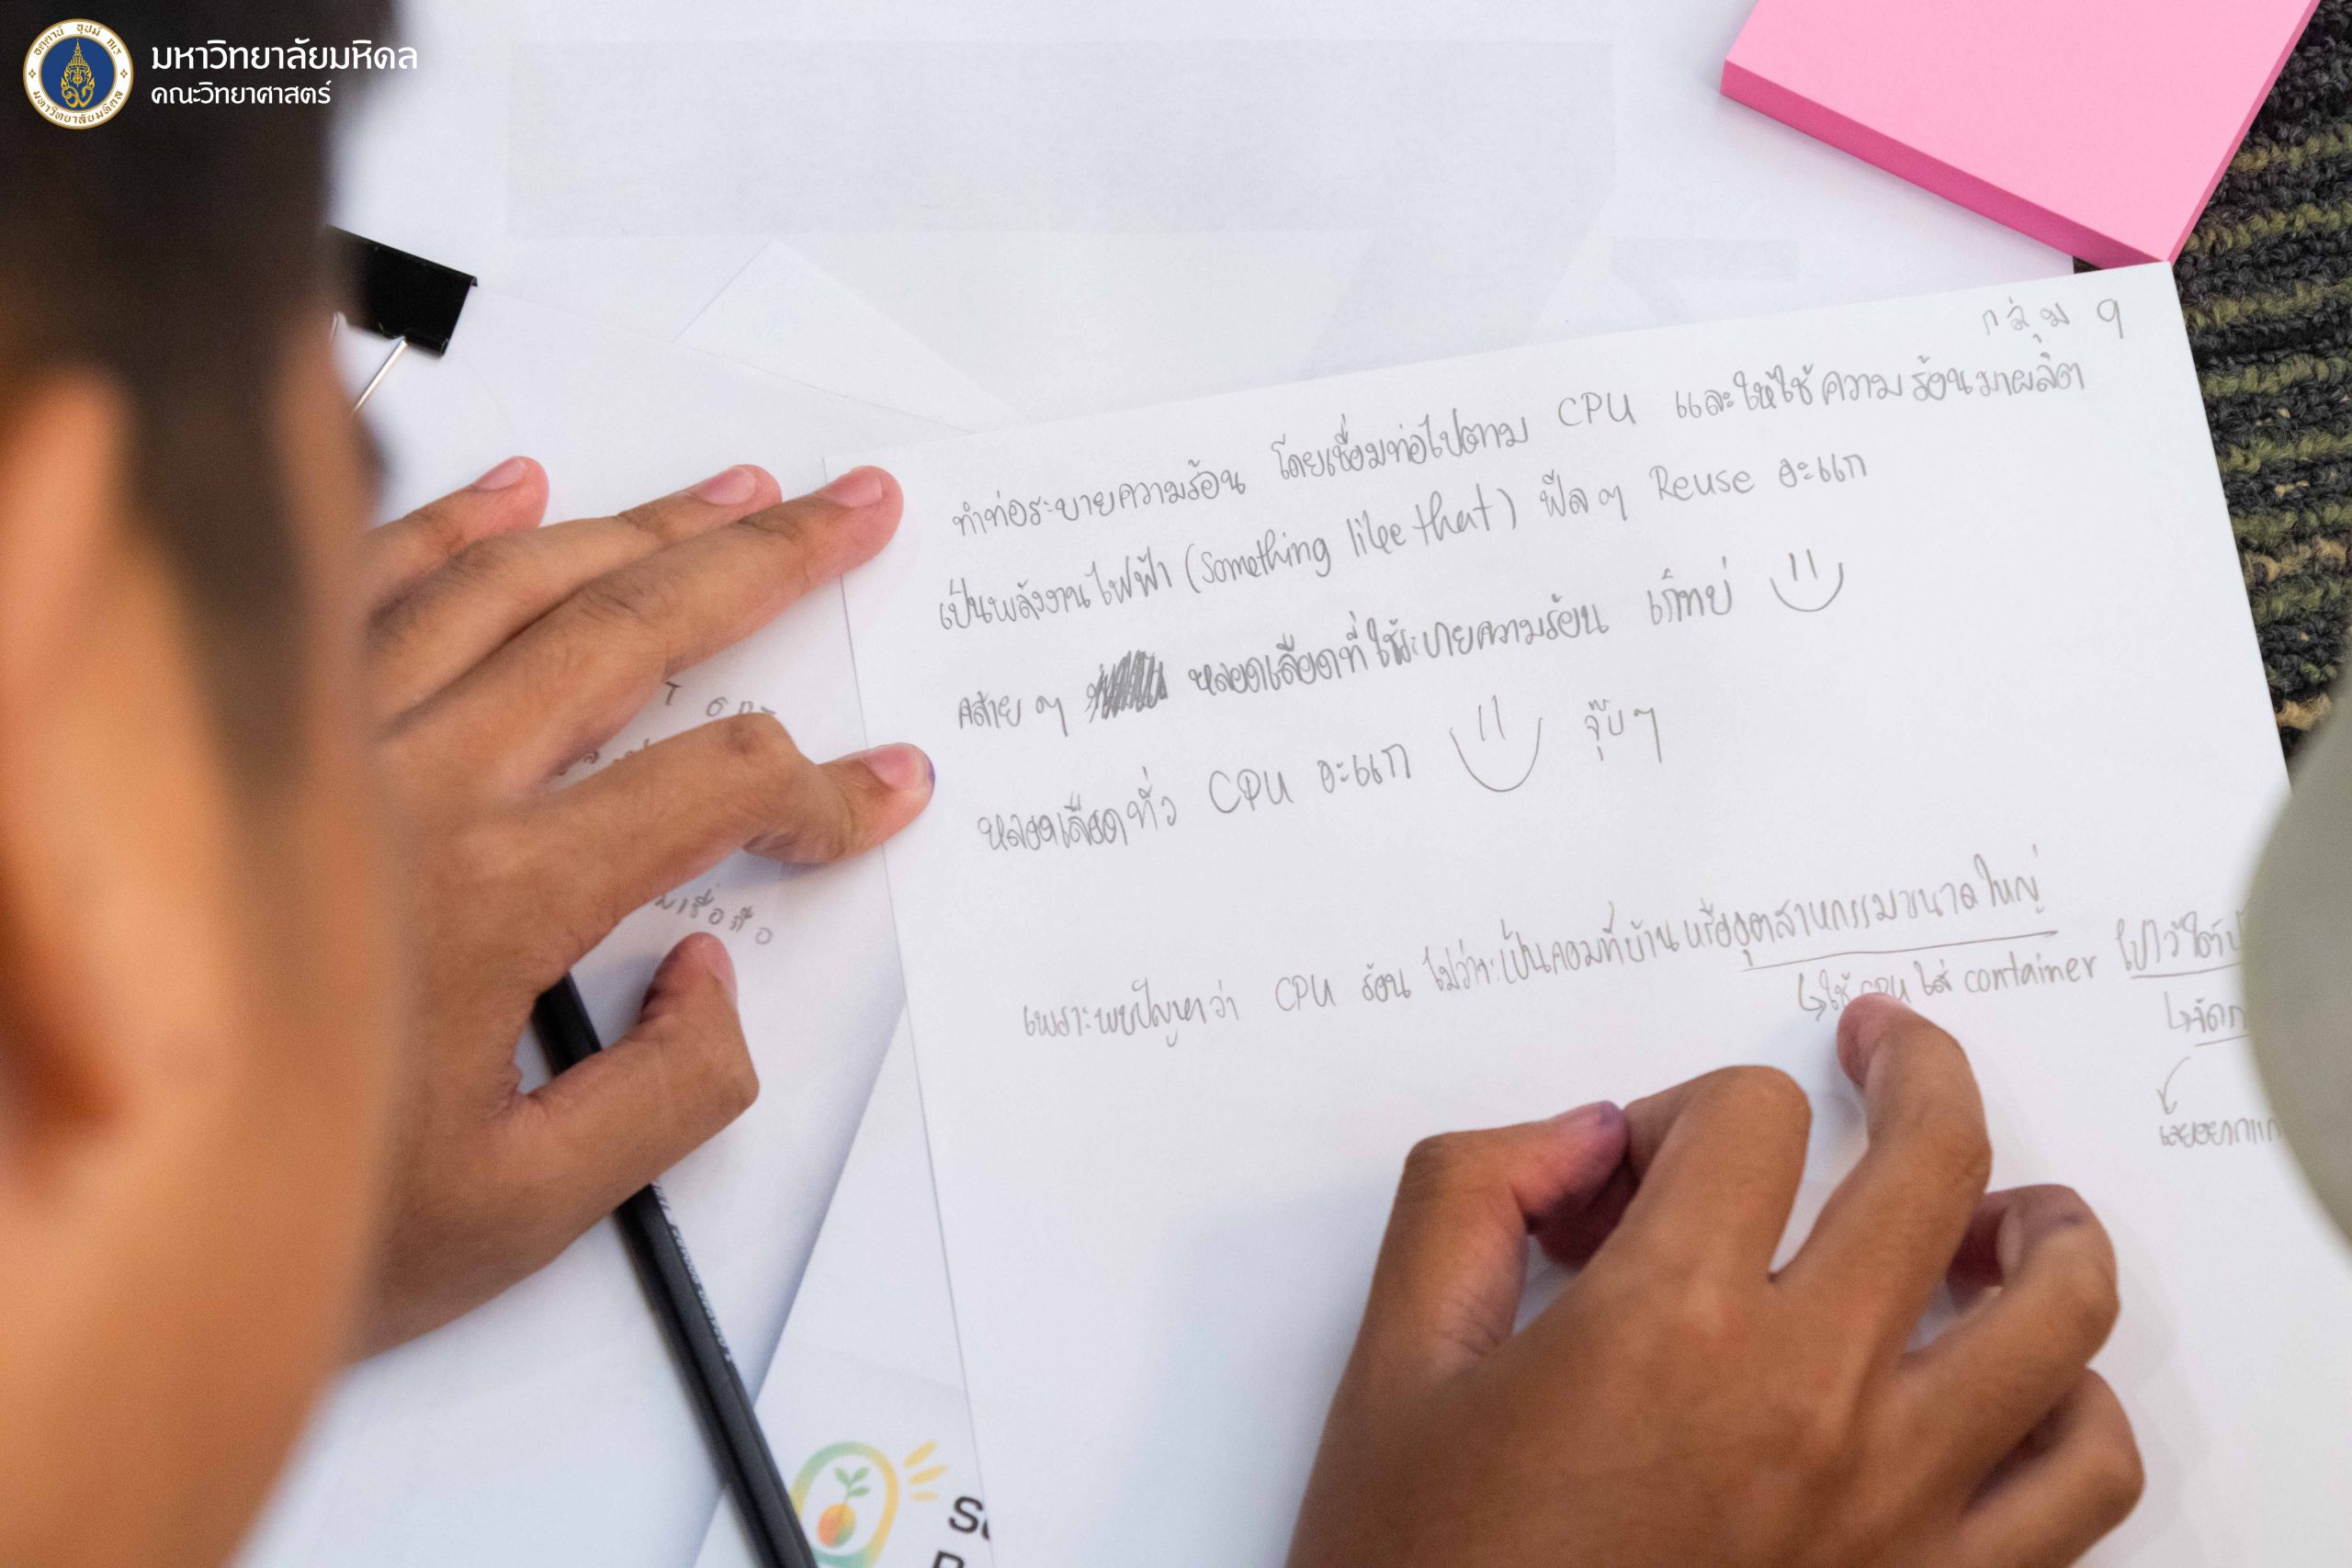 มหาวิทยาลัยมหิดล
คณะวิทยาศาสตร์
กลุ่ม 9
ทำท่อระบายความร้อน โดยเชื่อมท่อไปตาม CPU และให้ใช้ความร้อนมาผลิต
เป็นพลังงานไฟฟ้า (Something like that) ฟีลๆ Reuse อะแก
คล้ายๆ หลอดเลือดที่ใช้ระบายความร้อน เก็ทป่
หลอดเลือดทั่ว CPU อะแก จุ๊บๆ
เพราะพบปัญหาว่า CPU ร้อน ไม่ว่าจะเป็นคอมที่บ้านหรืออุตสาหกรรมขนาดใหญ่
↳ใช้ CPU ใส่ container ไปไว้ใต้